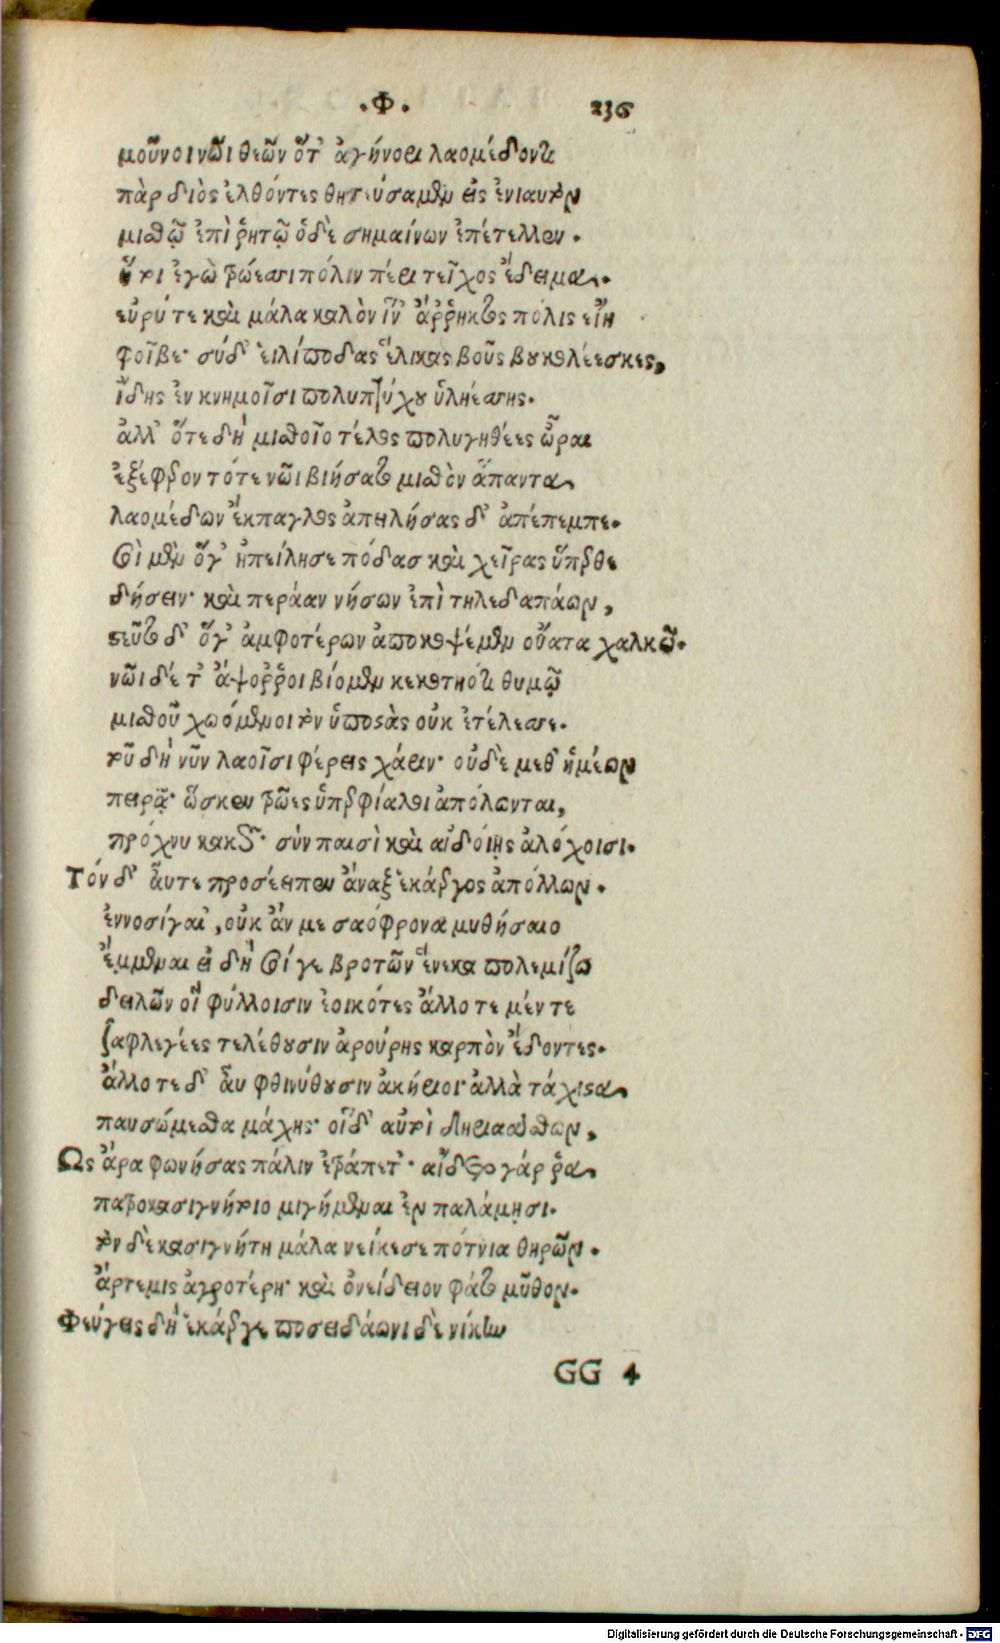 .Φ. 236
μοῦνοι νῶϊ θεῶν ὅτ' ἀγήνορι λαομέδοντι
πὰρ διὸς ἐλθόντες θητεύσαμεν εἰς ἐνιαυτὸν
μισθῷ ἐπὶ ῥητῷ ὁ δὲ σημαίνων ἐπέτελλεν.
ἤτοι ἐγὼ τρώεσσι πόλιν πέρι τεῖχος ἔδειμα.
εὐρύ τε καὶ μάλα καλὸν ἵν' ἄῤῥηκτος πόλις εἴη
φοῖβε· σύ δ' εἰλίποδας ἕλικας βοῦς βουκολέεσκες,
ἴδης ἐν κνημοῖσι πολυπτύχου ὑληέσσης.
ἀλλ' ὅτε δὴ μισθοῖο τέλος πολυγηθέες ὧραι
ἐξέφερον τότε νῶϊ βιήσατο μισθὸν ἅπαντα
λαομέδων ἔκπαγλος ἀπειλήσας δ' ἀπέπεμπε.
σοὶ μὲν ὅγ' ἠπείλησε πόδασ καὶ χεῖρας ὕπερθε
δήσειν· καὶ περάαν νήσων ἐπὶ τηλεδαπάων,
στεῦτο δ' ὅγ' ἀμφοτέρων ἀποκοψέμεν οὔατα χαλκῷ.
νῶϊ δέ τ' ἄψοῤῥοι βίομεν κεκοτηότι θυμῷ
μισθοῦ χωόμενοι τὸν ὑποστὰς οὐκ ἐτέλεσσε.
τοῦ δὴ νῦν λαοῖσι φέρεις χάριν· οὐδὲ μεθ' ἡμέων
πειρᾷ· ὥς κεν τρῶες ὑπερφίαλοι ἀπόλωνται,
πρόχνυ κακῶς· σὺν παισὶ καὶ αἰδοίῃς ἀλόχοισι.
Τόν δ' αὖτε προσέειπεν ἄναξ ἑκάεργος ἀπόλλων.
ἐννοσίγαι', οὐκ ἄν με σαόφρονα μυθήσαιο
ἔμμεναι εἰ δὴ σοί γε βροτῶν ἕνεκα πολεμίζω
δειλῶν οἳ φύλλοισιν ἐοικότες ἄλλοτε μέν τε
ζαφλεγέες τελέθουσιν ἀρούρης καρπὸν ἔδοντες.
ἄλλοτε δ' αὖ φθινύθουσιν ἀκήριοι· ἀλλὰ τάχιστα
παυσώμεσθα μάχης· οἳ δ' αὐτοὶ δηριαάσθων,
Ως ἄρα φωνήσας πάλιν ἐτράπετ'· αἴδετο γάρ ῥα
πατροκασιγνήτοιο μιγήμεναι ἐν παλάμῃσι.
τὸν δὲ κασιγνήτη μάλα νείκεσε πότνια θηρῶν.
ἄρτεμις ἀγροτέρη· καὶ ὀνείδειον φάτο μῦθον.
Φεύγεις δὴ ἑκάεργε ποσειδάωνι δὲ νίκην
GG 4
Digitalisierung gefördert durch die Deutsche Forschungsgemeinschaft - DFG